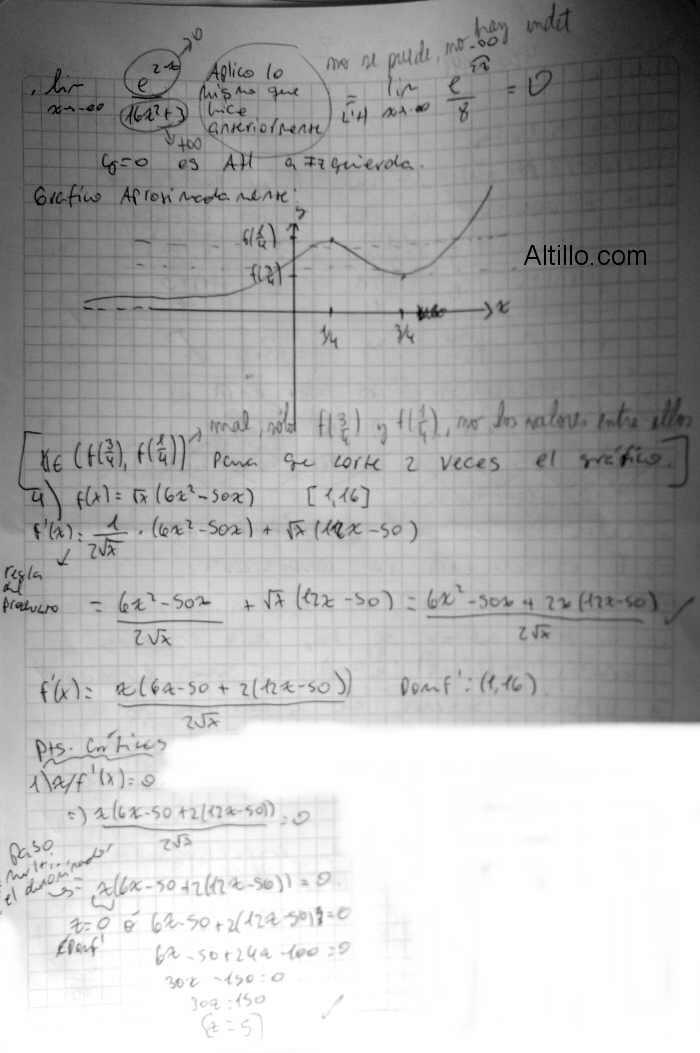 no se puede, no hay indet
. lim x→-∞ e^2x →0 / 16x²+3 →+∞ (Aplico lo mismo que hice anteriormente) = L'H lim x→-∞ e / 8 = 0
y=0 es AH a izquierda.
Grafico Aproximadamente:
y
f(1/4)
f(3/4)
Altillo.com
x
1/4 3/4
→ mal, sólo f(3/4) y f(1/4), no los valores entre ellos
[K ∈ (f(3/4), f(1/4)) para que corte 2 veces el gráfico.]
4) f(x) = √x (6x²-50x) [1,16]
f'(x) = 1/(2√x) · (6x²-50x) + √x (12x-50)
regla del producto
= (6x²-50x)/(2√x) + √x (12x-50) = (6x²-50x + 2x(12x-50))/(2√x) ✓
f'(x) = x(6x-50+2(12x-50))/(2√x) Dom f': (1,16)
Pts. Críticos
1) x/f'(x)=0
=) x(6x-50+2(12x-50))/(2√x) = 0
Paso multi. el denominador
x(6x-50+2(12x-50)) = 0
x=0 ó 6x-50+2(12x-50) = 0
∉ Dom f'
6x-50+24x-100=0
30x-150=0
30x=150
(x=5) ✓